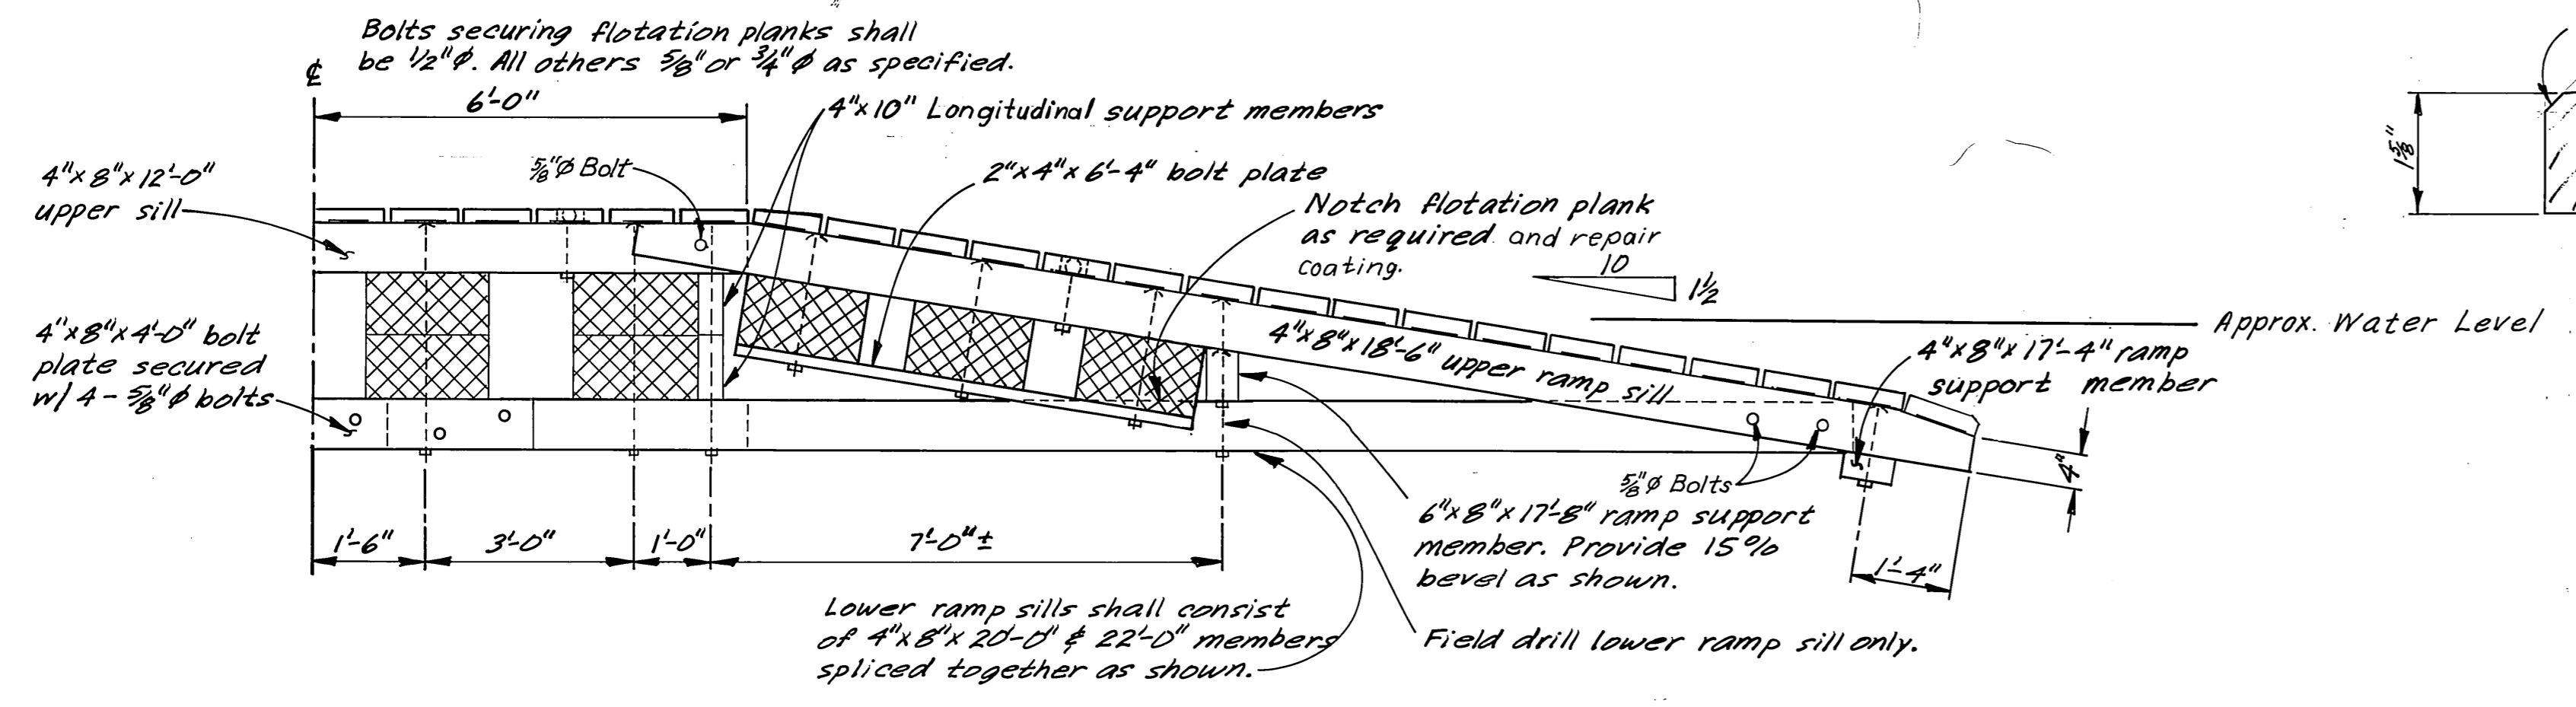 Bolts securing flotation planks shall
be 1/2"ϕ. All others 5/8" or 3/4"ϕ as specified.
℄
6'-0"
4"x10" Longitudinal support members
4"x8"x12'-0"
upper sill
5/8"ϕ Bolt
2"x4"x6'-4" bolt plate
Notch flotation plank
as required and repair
coating.
10
1 1/2
1 5/8"
Approx. Water Level
4"x8"x4'-0" bolt
plate secured
w/ 4 - 5/8"ϕ bolts
4"x8"x18'-6" upper ramp sill
4"x8"x17'-4" ramp
support member
4"
5/8"ϕ Bolts
6"x8"x17'-8" ramp support
member. Provide 15%
bevel as shown.
1'-6"
3'-0"
1'-0"
7'-0"±
1'-4"
Lower ramp sills shall consist
of 4"x8"x20'-0" & 22'-0" members
spliced together as shown.
Field drill lower ramp sill only.